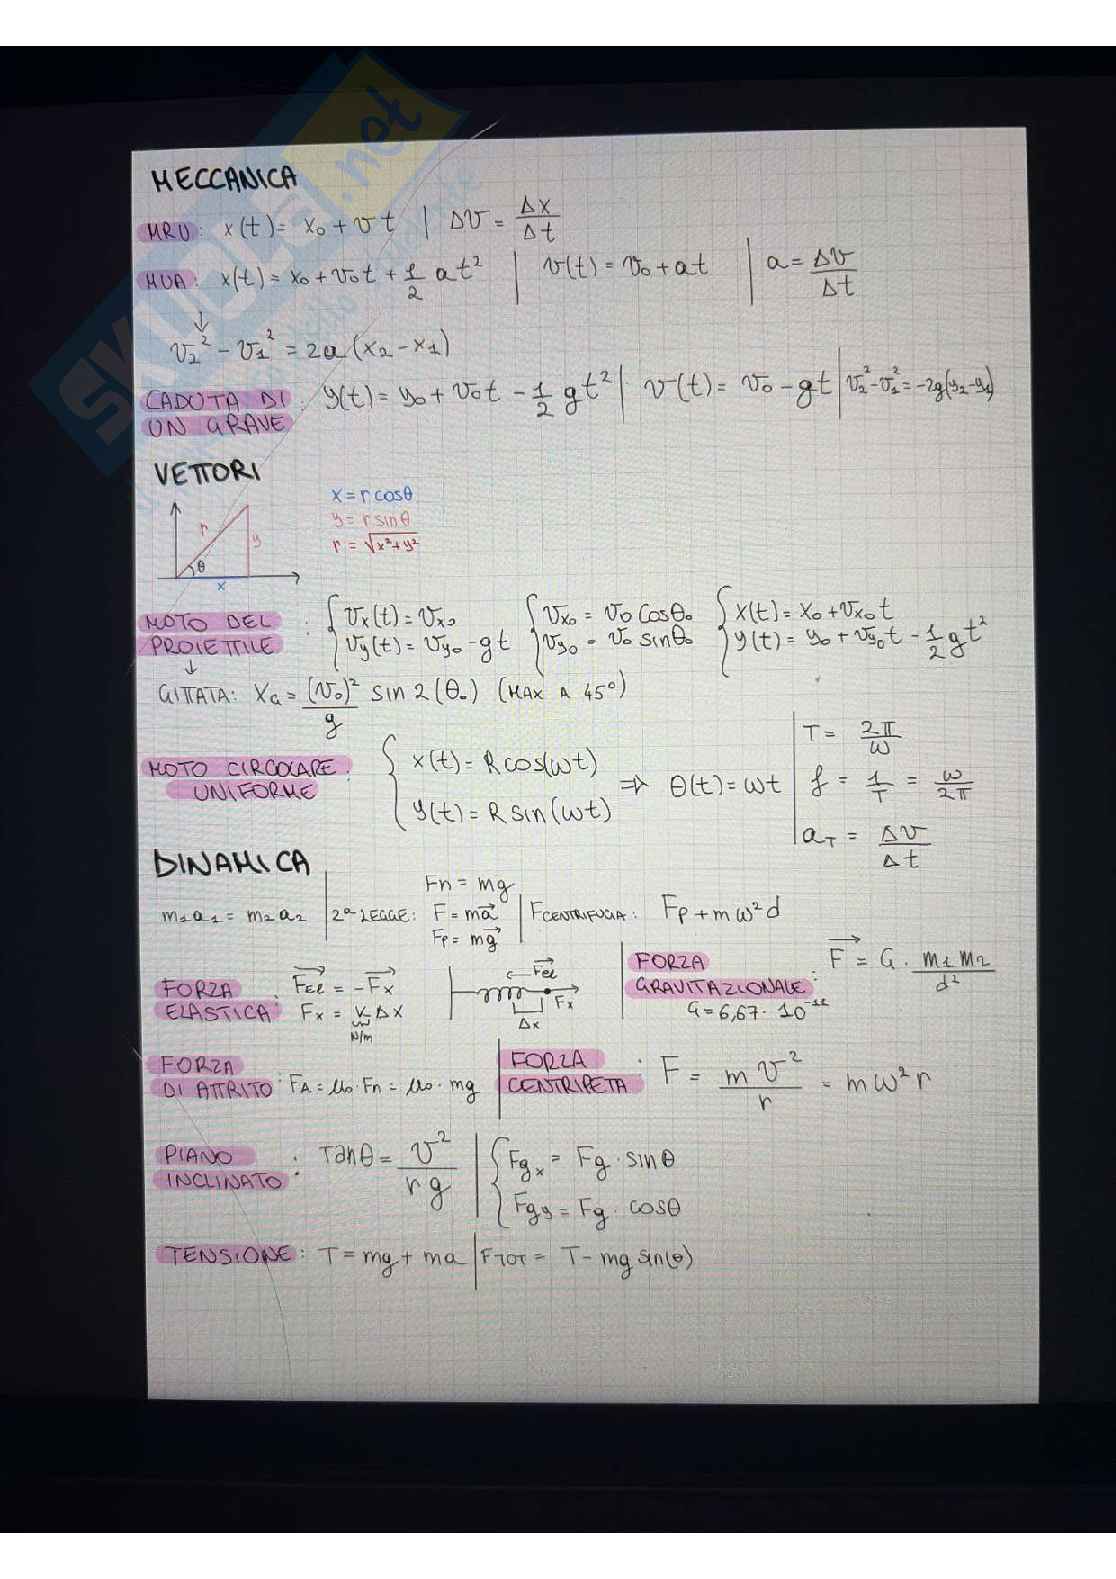 MECCANICA
MRU: x(t) = x₀ + vt | Δv = Δx/Δt
MUA: x(t) = x₀ + v₀t + 1/2 at² | v(t) = v₀ + at | a = Δv/Δt
↓
v₂² - v₁² = 2a (x₂ - x₁)
CADUTA DI UN GRAVE: y(t) = y₀ + v₀t - 1/2 gt² | v(t) = v₀ - gt | v₂² - v₁² = -2g(y₂ - y₁)
VETTORI
x = r cosθ
y = r sinθ
r = √x²+y²
r
y
θ
x
MOTO DEL PROIETTILE: { vx(t) = vx₀ { vx₀ = v₀ cosθ₀ { x(t) = x₀ + vx₀t
vy(t) = vy₀ - gt vy₀ = v₀ sinθ₀ y(t) = y₀ + vy₀t - 1/2 gt²
↓
GITTATA: xG = (v₀)²/g sin 2(θ₀) (MAX A 45°)
MOTO CIRCOLARE UNIFORME: { x(t) = R cos(ωt)
y(t) = R sin(ωt) ⇒ θ(t) = ωt
T = 2π/ω
f = 1/T = ω/2π
aT = Δv/Δt
DINAMICA
m₁a₁ = m₂a₂ | 2ª LEGGE: Fn = mg
F = ma
Fp = mg
FCENTRIFUGA: Fp + mω²d
FORZA ELASTICA: Fel = -Fx
Fx = k Δx
N/m
Fel
Fx
Δx
FORZA GRAVITAZIONALE: F = G · m₁m₂/d²
G = 6,67 · 10⁻¹¹
FORZA DI ATTRITO: FA = μ₀·Fn = μ₀·mg
FORZA CENTRIPETA: F = mv²/r = mω²r
PIANO INCLINATO: Tanθ = v²/rg | { Fgx = Fg · sinθ
Fgy = Fg · cosθ
TENSIONE: T = mg + ma | FTOT = T - mg sin(θ)
SKUOLA.net